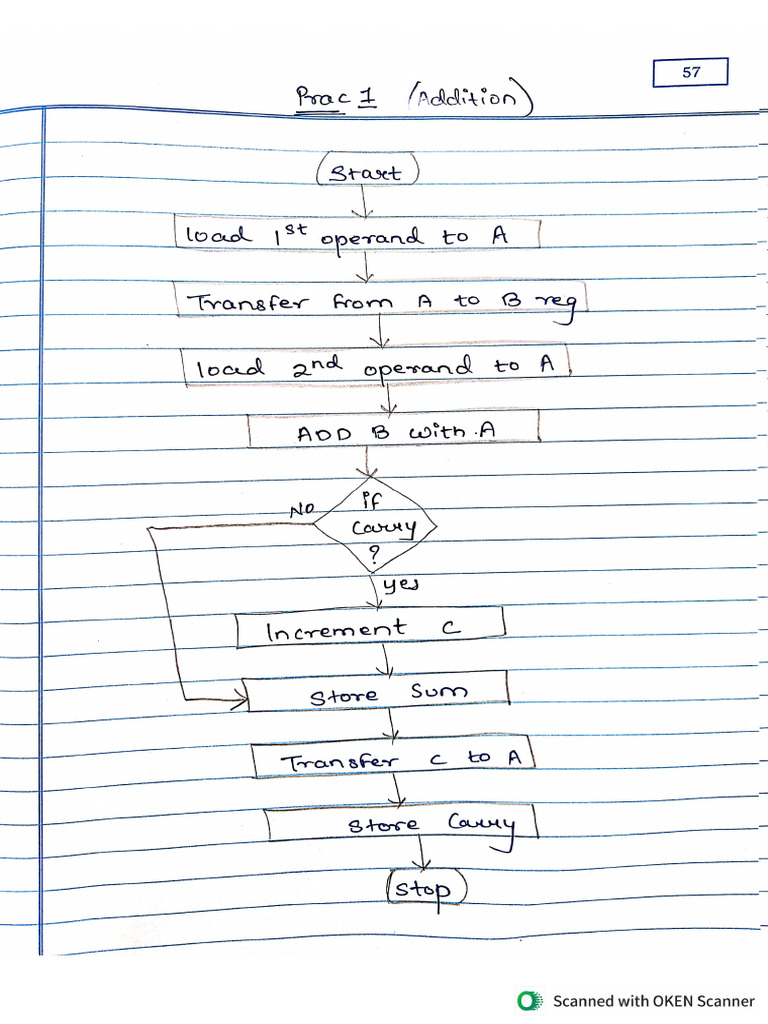 57
Prac 1 (Addition)
Start
load 1st operand to A
Transfer from A to B reg
load 2nd operand to A
ADD B with A
if
NO
Carry
?
yes
Increment C
Store Sum
Transfer C to A
Store Carry
Stop
Scanned with OKEN Scanner